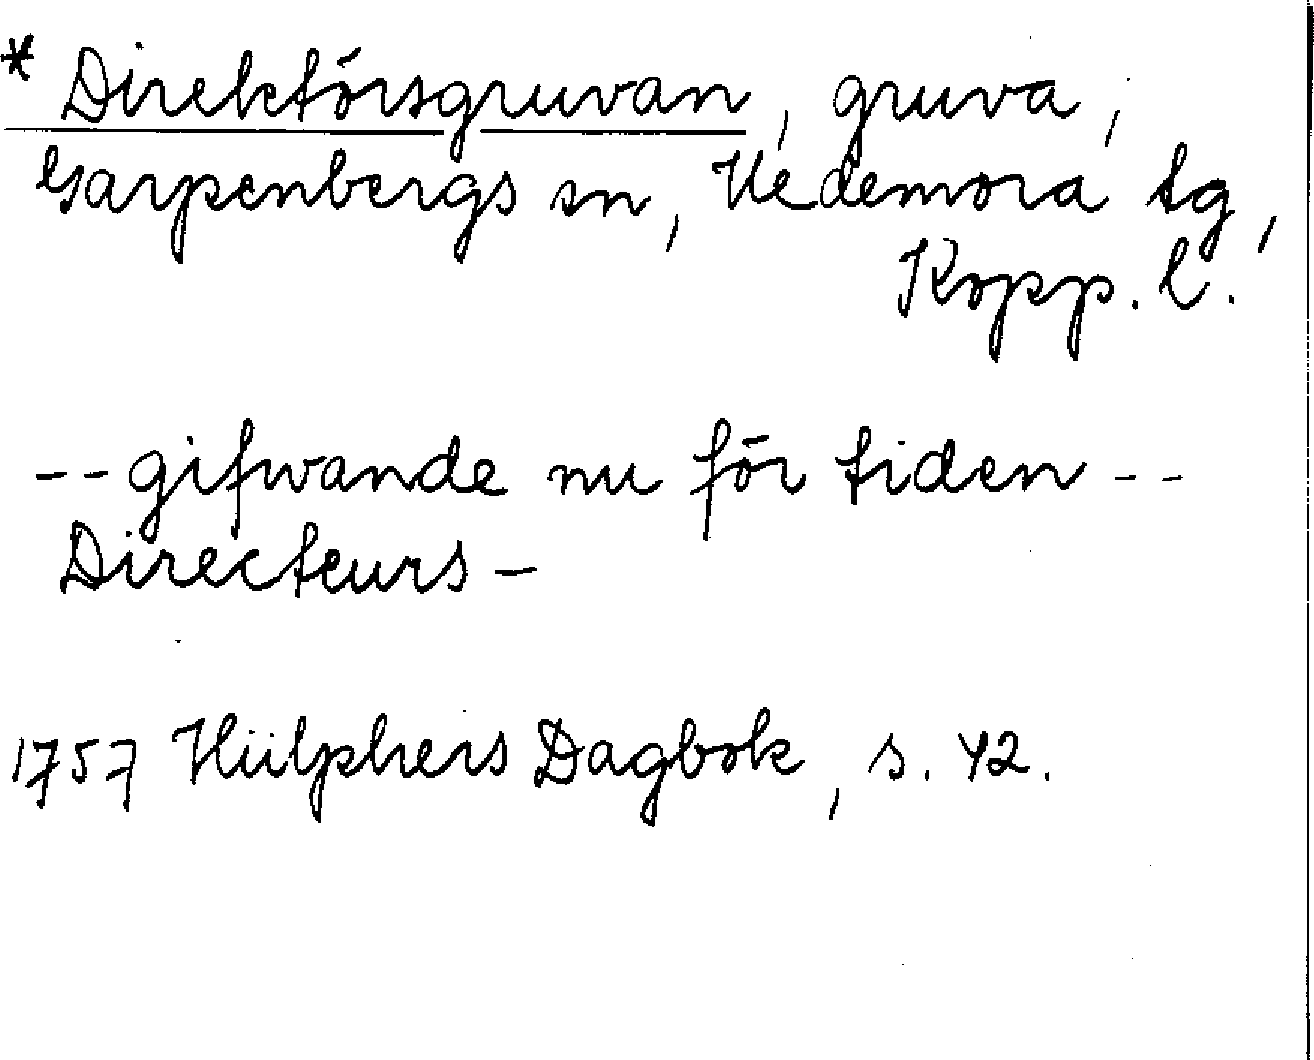 * Direktörsgruvan, gruva,
Garpenbergs sn, Hedemora tg,
Kopp. l.
-- gifwande nu för tiden --
Directeurs -
1757 Hülphers Dagbok, s. 42.